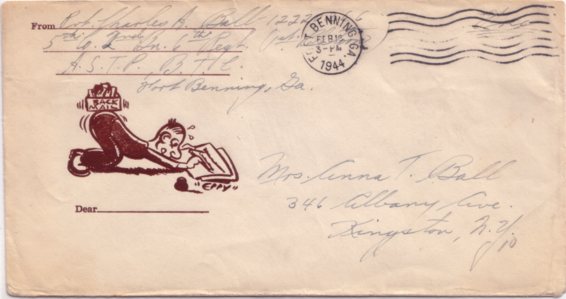 From Pvt. Charles A. Ball - 1222
5th Co. 2nd Bn. 6th Regt.
A.S.T.P. B.T.C.
Fort Benning, Ga.
FORT BENNING, GA.
FEB 12
3-PM
1944
BACK
AGAIN
"EPPY"
Dear
Mrs. Anna T. Ball
346 Albany Ave.
Kingston, N.Y.